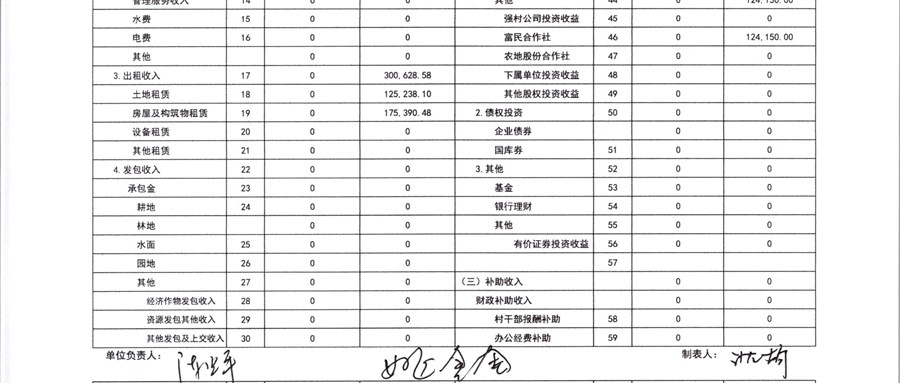 管理服务收入 14 0 0 其他 44 0 124,150.00
水费 15 0 0 强村公司投资收益 45 0 0
电费 16 0 0 富民合作社 46 0 124,150.00
其他 0 0 农地股份合作社 47 0 0
3.出租收入 17 0 300,628.58 下属单位投资收益 48 0 0
土地租赁 18 0 125,238.10 其他股权投资收益 49 0 0
房屋及构筑物租赁 19 0 175,390.48 2.债权投资 50 0 0
设备租赁 20 0 0 企业债券 0 0
其他租赁 21 0 0 国库券 51 0 0
4.发包收入 22 0 0 3.其他 52 0 0
承包金 23 0 0 基金 53 0 0
耕地 24 0 0 银行理财 54 0 0
林地 0 0 其他 55 0 0
水面 25 0 0 有价证券投资收益 56 0 0
园地 26 0 0 57
其他 27 0 0 (三)补助收入 0 0
经济作物发包收入 28 0 0 财政补助收入 0 0
资源发包其他收入 29 0 0 村干部报酬补助 58 0 0
其他发包及上交收入 30 0 0 办公经费补助 59 0 0
单位负责人: 制表人: